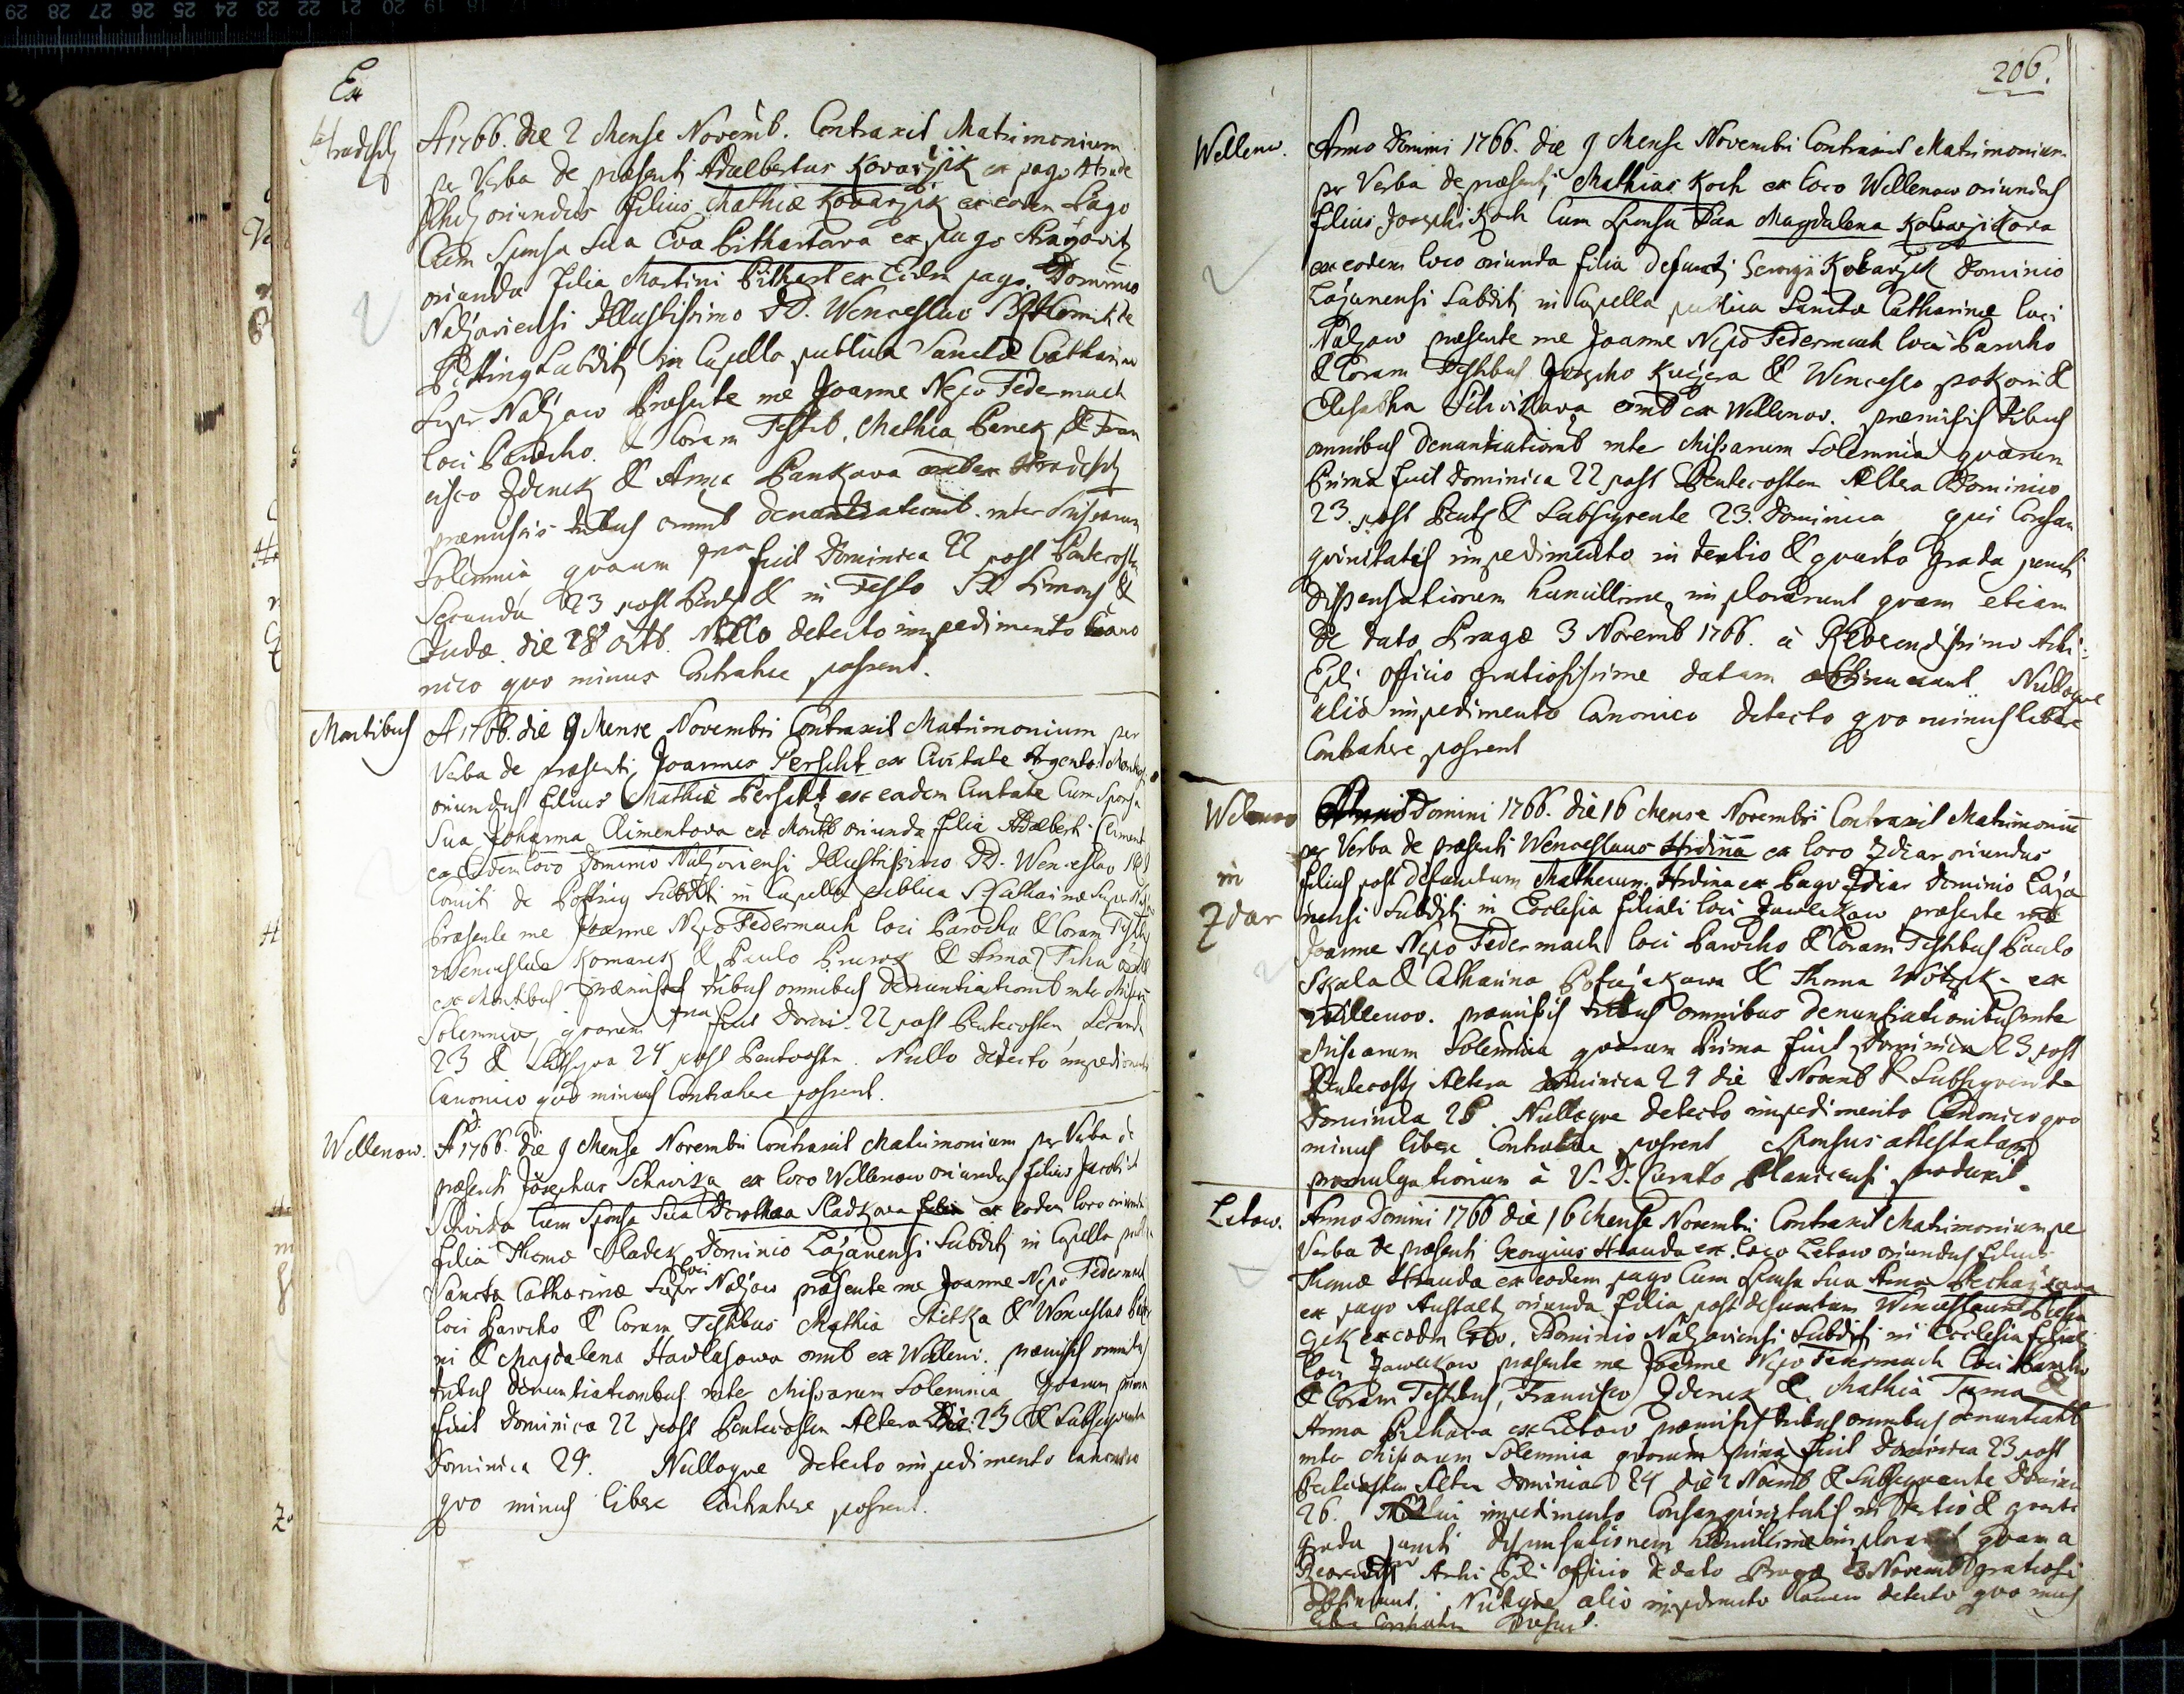 Ex
Hradsch
A 1766. die 2 Mense Novemb. Contraxit Matrimonium
per Verba de præsenti Adalbertus Kovarzik ex pago Hrade
oriundus filius Mathiæ Kovarzik ex eodem Pago
Cum Sponsa Sua Eva Pithartova ex pago
oriunda filia Martini Pithart ex Eodem pago. Dominio
Nalzoviensi Illustrissimo DD. Wenceslao Comiti de
Pötting Subditi in Capella publica Sanctæ Catharinæ
Supr Nalzow Præsente me Joanne Nepo Federmach
loci Parocho. & Coram Testib. Mathia Panek, & Fran
cisco Zdenek & Anna Pankova omb ex Hradesch
præmissis tribus omnib denuntiationib. inter Missarum
Solemnia quarum pma fuit Dominica 22 post Pentecosten
Secunda 23 post Pents & in Festo SS Simonis &
Judæ die 28 octb. Nullo detecto impedimento Cano
nico quo minus Contrahere possent.
Montibus
A 1766. die 9 Mense Novembri Contraxit Matrimonium per
Verba de præsenti Joannes Perscht ex Civitate Argento.
oriundus filius Mathiæ Perscht ex eadem Civitate Cum Sponsa
Sua Johanna Climentova ex Montib oriunda filia Adalberti Climent
ex Eodem loco Dominio Nalzoviensi Illustrissimo DD. Wenceslao
Comiti de Potting Subditi in Capella publica S. Catharinæ Supr
Præsente me Joanne Nepo Federmach loci Parocho & Coram Testibus
Wenceslao Komarek & Paulo & Anna
ex Montibus præmissis tribus omnibus denuntiationib inter Missarum
Solemnia, quarum pma fuit Domi. 22 post Pentecosten Secunda
23 & Subsequa 24 post Pentecosten. Nullo detecto impedimento
Canonico quo minus Contrahere possent.
Wellenow.
A 1766. die 9 Mense Novembri Contraxit Matrimonium per Verba de
præsenti Josephus Schwirza ex loco Wellenow oriundus filius Jacobi
Schwirza Cum Sponsa Sua Dorothea Sladkova filia ex eodem loco oriunda
filia Thomæ Sladek Dominio Lazanensi Subditi in Capella
Sancta Catharinæ Supr loci Nalzow præsente me Joanne Nepo Federmach
loci Parocho & Coram Testibus Mathia & Wenceslao
& Magdalena Hawlasowa omb ex Welleni. præmissis omnibus
tribus denuntiationibus inter Missarum Solemnia quarum prima
fuit Dominica 22 post Pentecosten Altera Die: 23 & Subsequente
Dominica 24. Nulloque detecto impedimento canonico
quo minus libere Contrahere possent.
206.
Wellenw.
Anno Domini 1766. die 9 Mense Novembri Contraxit Matrimonium
per Verba de præsenti Mathias Koch ex loco Wellenow oriundus
filius Josephi Koch Cum Sponsa Sua Magdalena Kobarzikova
ex eodem loco oriunda filia defuncti Georgii Kobarzik Dominio
Lazanensi Subditi in Capella publica Sanctæ Catharinæ loci
Nalzow præsente me Joanne Nepo Federmach loci Parocho
& Coram Testibus Josepho Kuczera & Wenceslao &
Elisabtha omb ex Wellenov. præmissis tribus
omnibus denuntiationib inter Missarum Solemnia quarum
Prima fuit Dominica 22 post Pentecosten Altera Dominica
23. post Pents & Subsequente 23. Dominica qui Consan
guinitatis impedimento in tertio & quarto gradu
dispensationem humillime implorarunt quam etiam
de dato Pragæ 3 Novemb 1766. à Reverendissimo Archi:
Epli officio gratiosissime datam obtinuerunt Nulloque
alio impedimento Canonico detecto quo minus libere
Contrahere possent
Welenow
in
Zdar
Anno Domini 1766. die 16 Mense Novembri Contraxit Matrimoniu
per Verba de præsenti Wenceslaus Hrdina ex loco Zdiar oriundus
filius post defunctum Matheum Hrdina ex Pago Zdiar Dominio Laza
nensi Subditi in Ecclesia filiali loci Zawlekow præsente me
Joanne Nepo Federmach loci Parocho & Coram Testibus Paulo
Skala & Catharina & Thoma ex
Willenov. præmissis tribus omnibus denuntiationibus inter
Missarum Solemnia quarum Prima fuit Dominica 23 post
Pentecosten Altera Dominica 24 die 2 Novemb & Subsequente
Dominica 26. Nulloque detecto impedimento Canonico quo
minus libere Contrahere possent Sponsus attestatam
promulgationum à V. D. Curato Planicensi produxit.
Letow.
Anno Domini 1766 die 16 Mense Novembri Contraxit Matrimonium pe
Verba de præsenti Georgius Hrauda ex loco Letow oriundus filius
Thomæ Hrauda ex eodem pago Cum Sponsa Sua Anna
ex pago oriunda filia post defunctum Wenceslaum
ex eodem loco, Dominio Nalzoviensi Subditi in Ecclesia filiali
loci Zawlekow præsente me Joanne Nepo Federmach loci Parocho
& Coram Testibus, Francisco Zdenek & Mathia Tuma &
Anna ex Letow præmissis tribus omnibus denuntiatib
inter Missarum Solemnia quarum prima fuit Dominica 23 post
Pentecosten Altera Dominica 24 die 2 Novemb & Subsequente Domini
26. impedimento Consanguinitatis in tertio & quarto
gradu dispensationem humillime implorarunt quam a
Reverendissimo Archi Epli officio de dato Pragæ 3 Novemb gratiosi
obtinuerunt. Nulloque alio impedimento detecto quo minus
libere Contrahere possent.